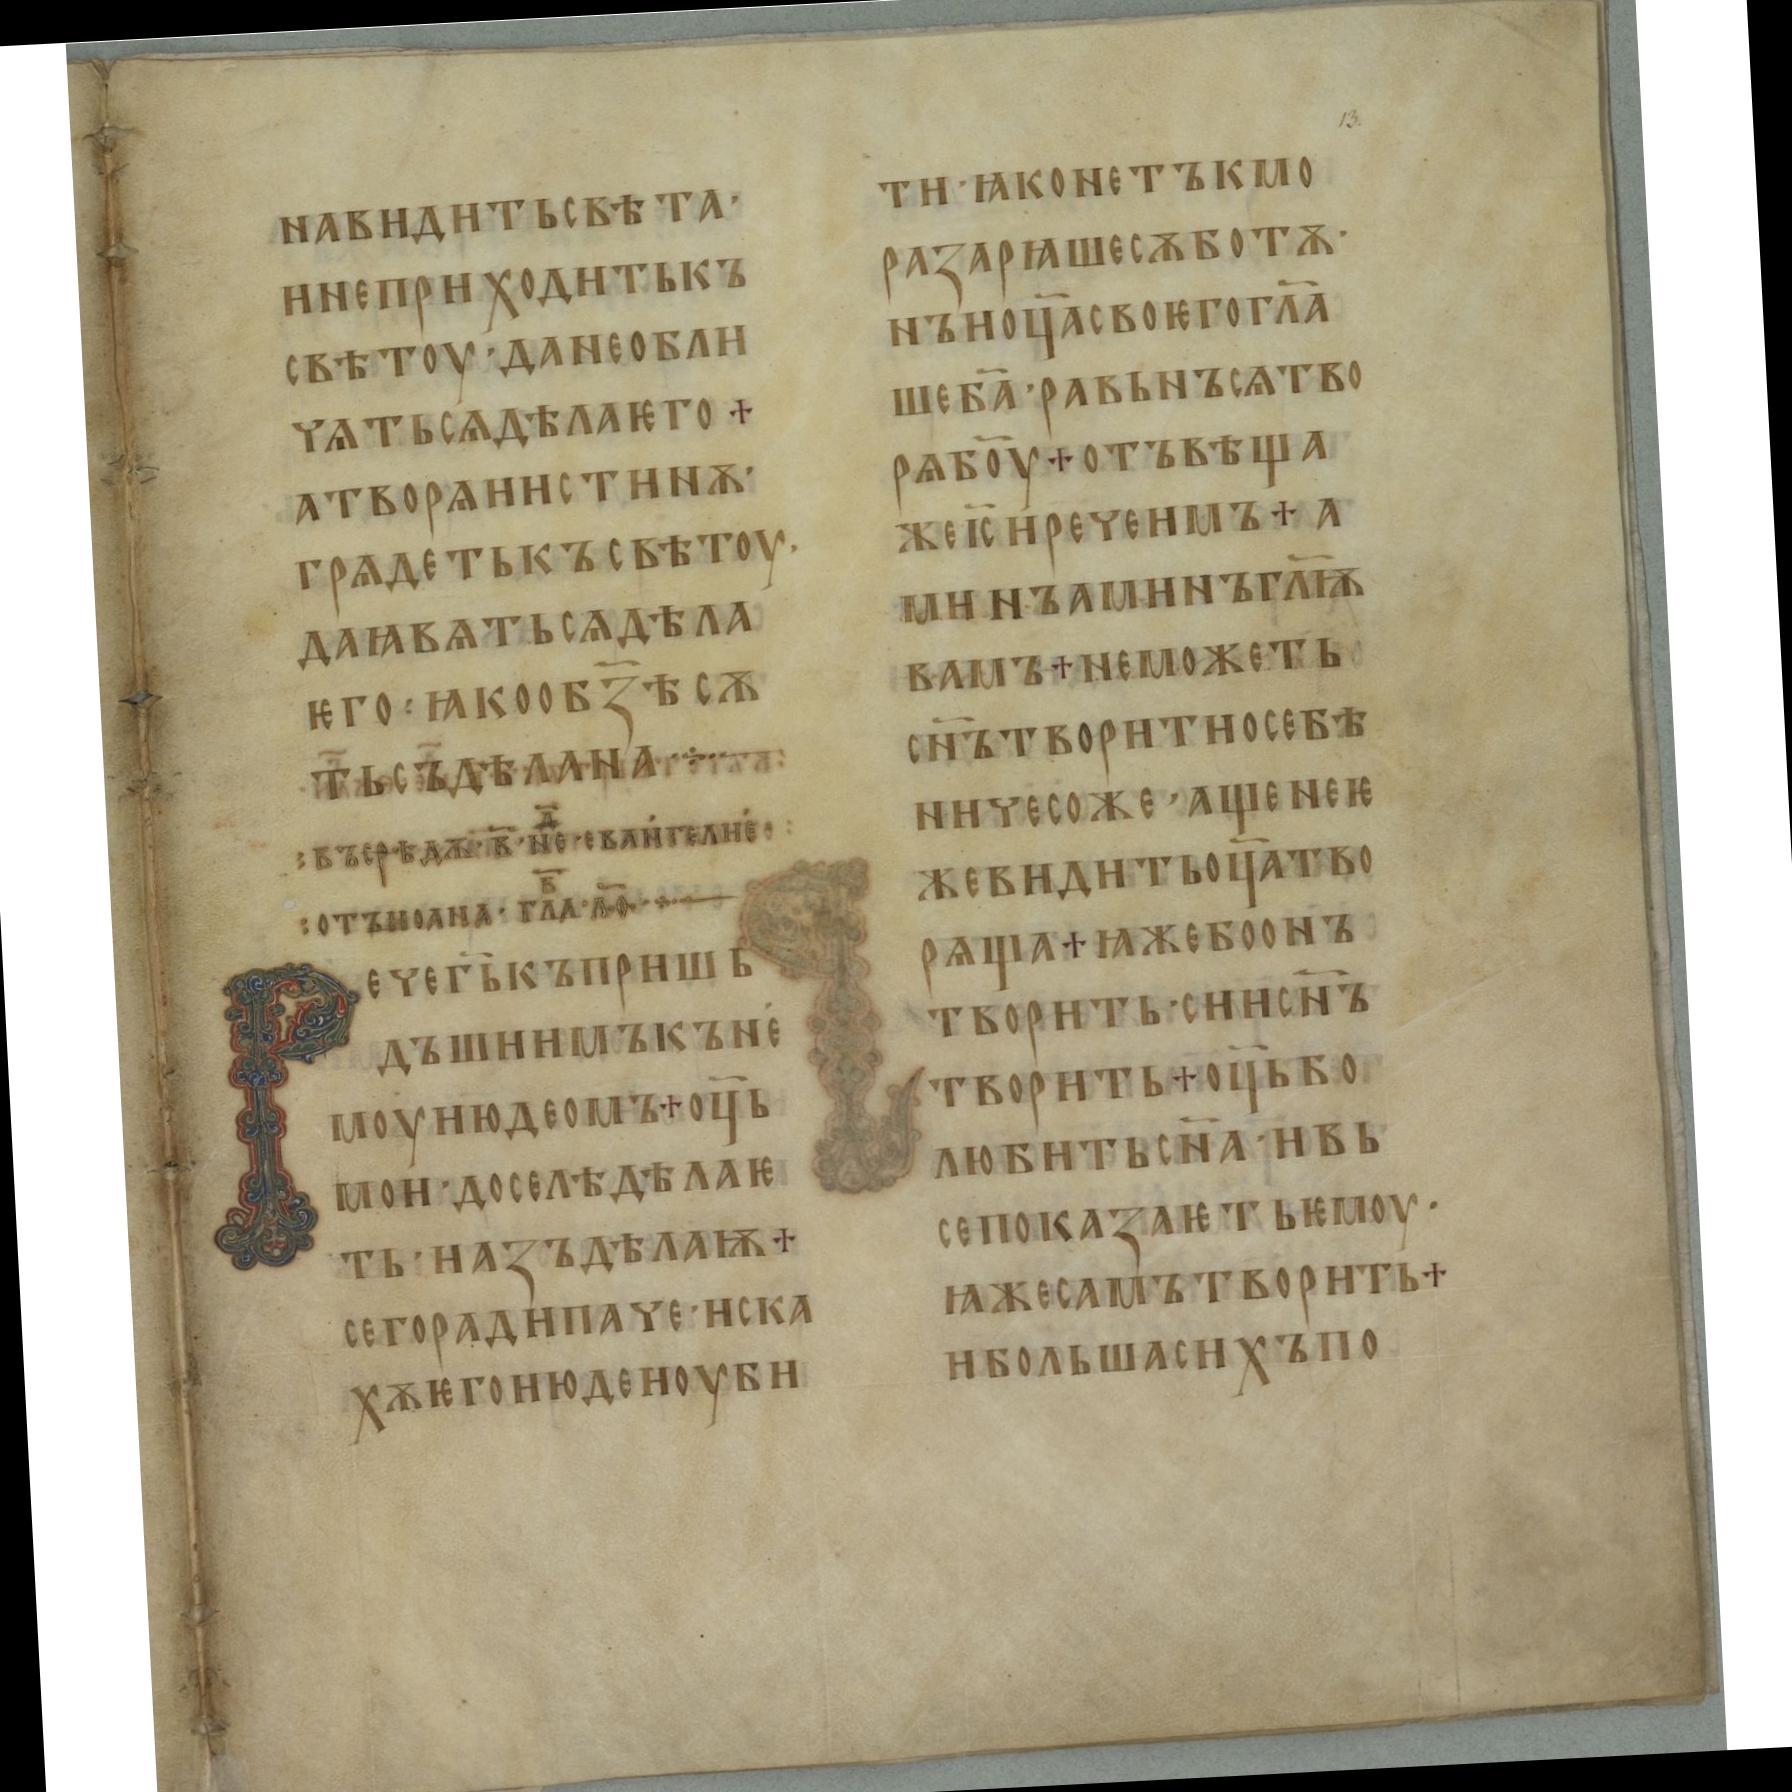 13.
навидитьсвѣта·
инеприходитькъ
свѣтоу·данеобли
чѧтьсѧдѣлаѥго+
атворѧиистинѫ·
грѧдетькъсвѣтоу·
даꙗвѧтьсѧдѣла
ѥго:ꙗкообꙁ҃ѣсѫ
тьсъдѣлана
:въсрѣдѫ·в҃·не҃д·еваньгелие:
:отъиоана·гла·
Речег҃ькъпришь
дъшиимъкъне
моуиюдеомъ+оц҃ь
мои·доселѣдѣлаѥ
ть·иаꙁъдѣлаѭ+
сегорадипаче·иска
хѫѥгоиюдеиоуби
ти·ꙗконетъкмо
раꙁарꙗшесѫботѫ·
нъиоц҃асвоѥгогл҃а
шеб҃а·равьнъсѧтво
рѧбо҃у+отъвѣща
жеіс҃иречеимъ+а
минъаминъгл҃ѭ
вамъ+неможеть
сн҃ътворитиосебѣ
ничесоже·ащенеѥ
жевидитьоц҃атво
рѧща+ꙗжебоонъ
творить·сиисн҃ъ
творить+оц҃ьбо
любитьсн҃а·ивь
сепокаꙁаѥтьѥмоу·
ꙗжесамътворить+
ибольшасихъпо